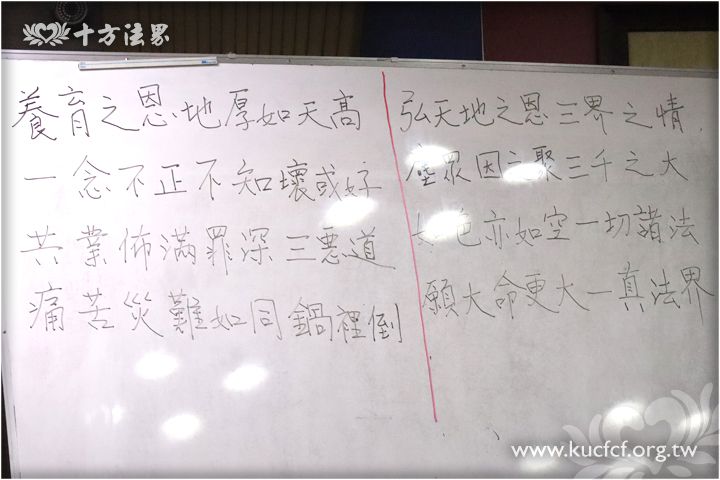 十方法界
養育之恩地厚如天高
一念不正不知壞或好
共業佈滿罪深三惡道
痛苦災難如同鍋裡倒
弘天地之恩三界之情,
塵眾因之聚三千之大
如色亦如空一切諸法
願大命更大一真法界
www.kucfcf.org.tw